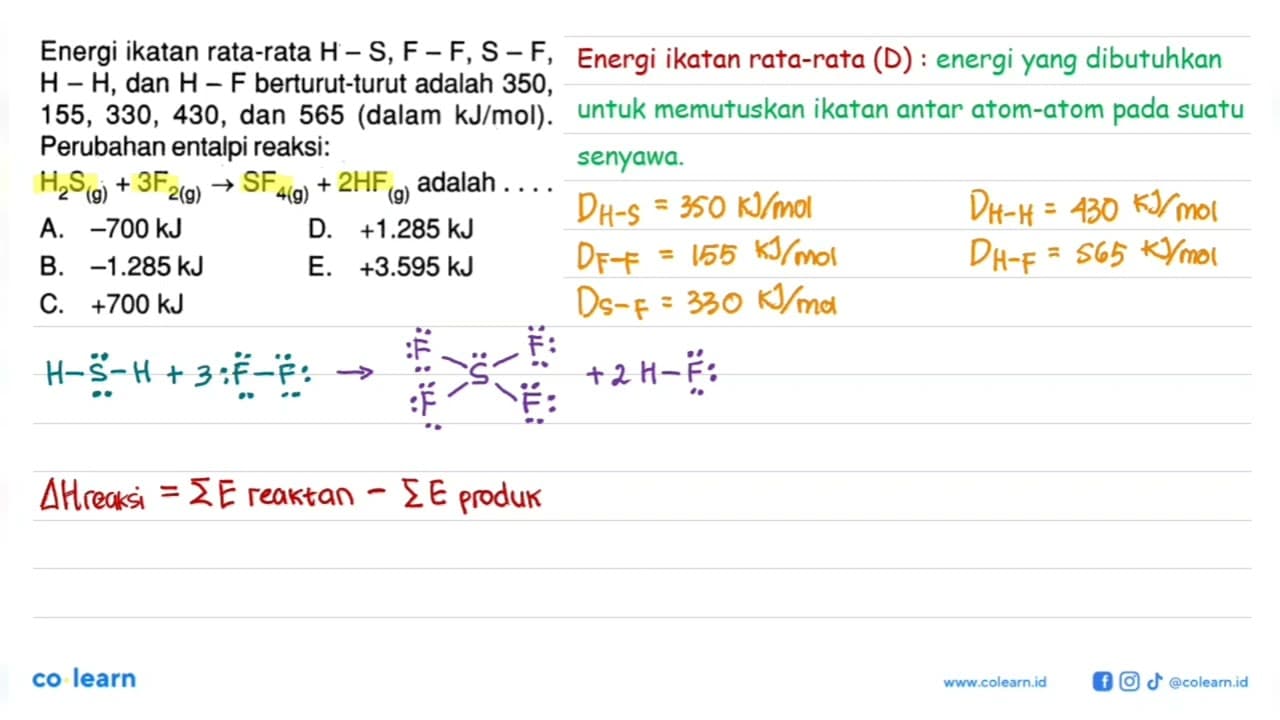 Energi ikatan rata-rata H – S, F – F, S – F,
H – H, dan H – F berturut-turut adalah 350,
155, 330, 430, dan 565 (dalam kJ/mol).
Perubahan entalpi reaksi:
H₂S(g) + 3F₂(g) → SF₄(g) + 2HF(g) adalah . . . .
A. –700 kJ D. +1.285 kJ
B. –1.285 kJ E. +3.595 kJ
C. +700 kJ
Energi ikatan rata-rata (D) : energi yang dibutuhkan
untuk memutuskan ikatan antar atom-atom pada suatu
senyawa.
D H-S = 350 kJ/mol D H-H = 430 kJ/mol
D F-F = 155 kJ/mol D H-F = 565 kJ/mol
D S-F = 330 kJ/mol
H-S-H + 3 :F-F: → :F F: S :F F: + 2 H-F:
ΔHreaksi = ΣE reaktan - ΣE produk
co learn
www.colearn.id @colearn.id